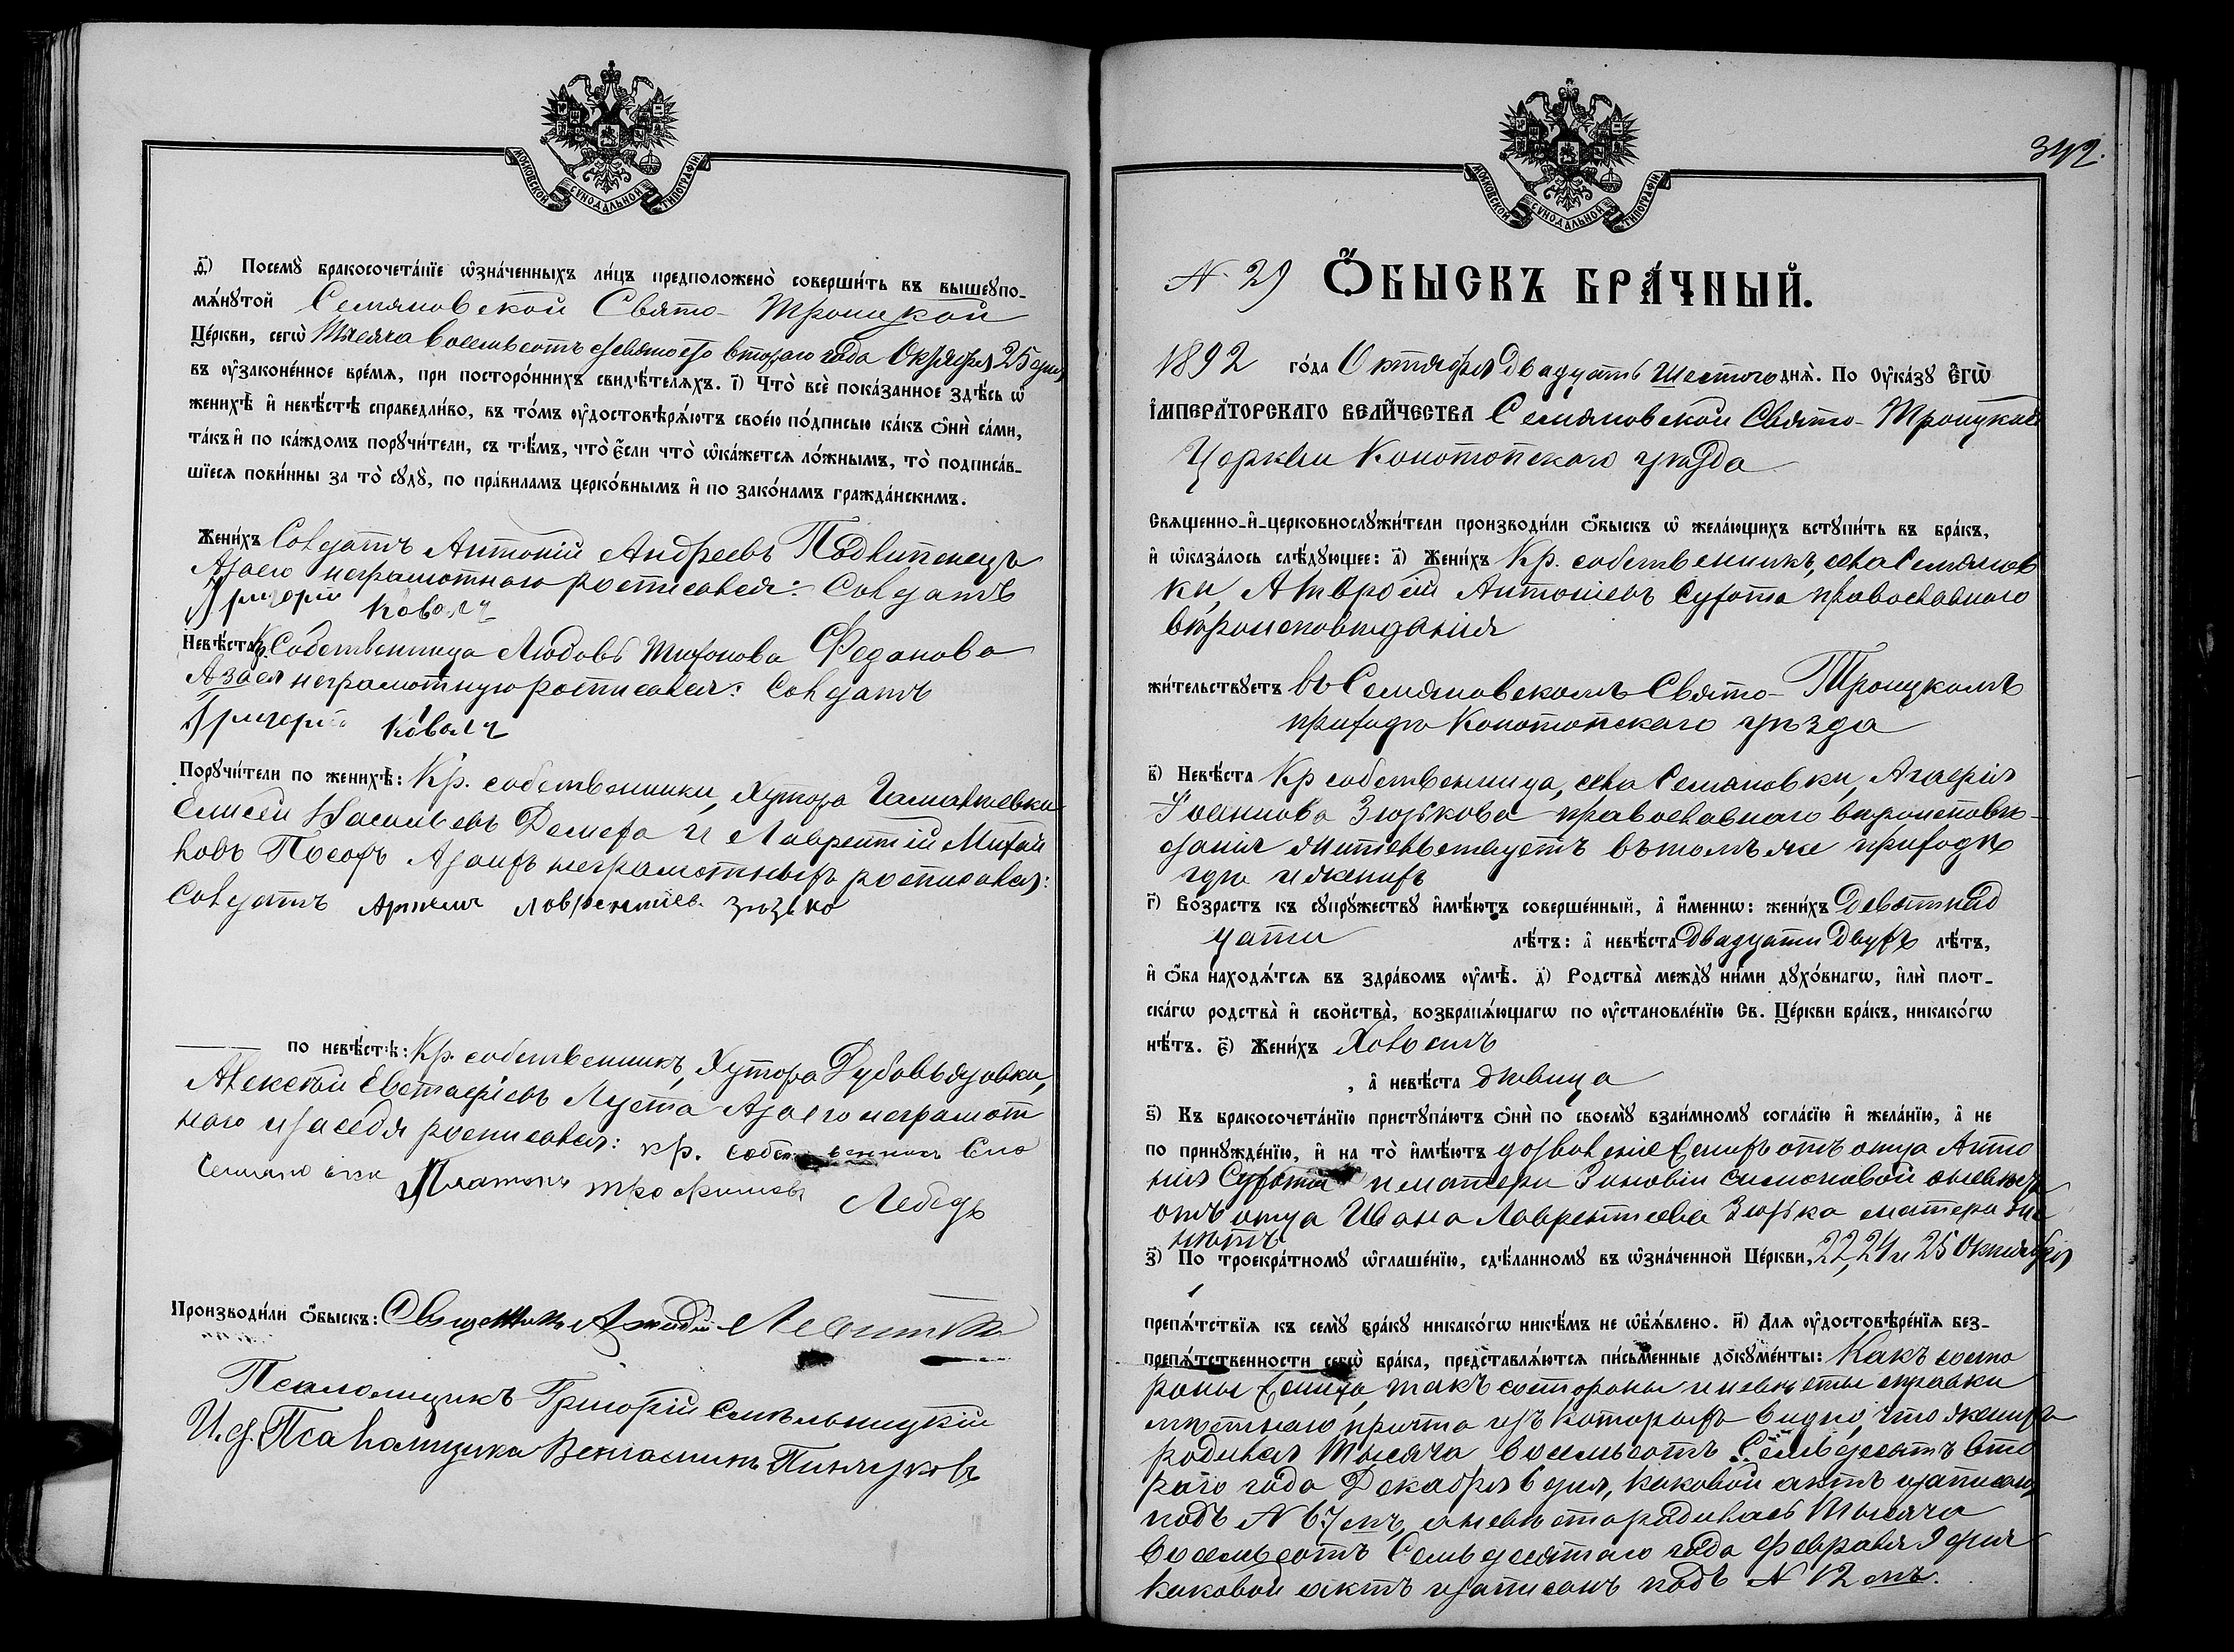 МОСКОВСКОЙ СУНОДАЛЬНОЙ ТИПОГРАФІИ
д҃) Посемꙋ бракосочетаніе ѡзначенныхъ лицъ предположено совершить въ вышеꙋпо-
мянꙋтой Семяновской Свято-Троицкой
Церкви, сегѡ Тысяча восемьсотъ девяносто втораго года Октября 25 дня
въ ᲂузаконенное время, при постороннихъ свидѣтеляхъ. і҃) Что все показанное здѣсь ѡ
женихѣ и невѣстѣ справедливо, въ томъ ᲂудостовѣряютъ своею подписью какъ ѻни сами,
такъ и по каждомъ порꙋчители, съ тѣмъ, что если что ѡкажется ложнымъ, то подписав-
шіеся повинны за то сꙋдꙋ, по правиламъ церковнымъ и по законамъ гражданскимъ.
Женихъ Солдатъ Антоній Андреевъ Подлипенецъ
А за его неграмотнаго росписался: Солдатъ
Григорій Коваль
Невѣста Кр. Собственница Любовь Федакова
А за ея неграмотную росписался: Солдатъ
Григорій Коваль
Порꙋчители по женихѣ: Кр. собственники, Хутора
Елисей Васильевъ Демеха и Лаврентій Михай
ловъ А за ихъ неграмотныхъ росписался:
Солдатъ Лаврентіев.
по невѣстѣ: Кр. собственникъ, Хутора Дубовъязовки,
Алексѣй Евстафіевъ Луста А за его неграмот
наго и за себя росписался: кр. собственникъ Сло
Платонъ Трофимовъ Лебедь
Производили ѻбыскъ: Священникъ Левитскій
Псаломщикъ Григорій Смѣльницкій
И. д. Псаломщика Веніаминъ
342.
МОСКОВСКОЙ СУНОДАЛЬНОЙ ТИПОГРАФІИ
N. 29 ѺБЫСКЪ БРАЧНЫЙ.
1892 года Октября двадцать шестого дня. По ᲂуказꙋ Егѡ
ІМПЕРАТОРСКАГО ВЕЛИЧЕСТВА Семяновской Свято-Троицкой
Церкви Конотопскаго уѣзда
Священно-и-церковнослꙋжители производили ѻбыскъ ѡ желающихъ встꙋпить въ бракъ,
и ѡказалось слѣдꙋющее: а҃) Женихъ Кр. собственникъ, села Семянов
ки, Амвросій Антоніевъ Сухота православнаго
вѣроисповѣданія
жительствꙋетъ въ Семяновскомъ Свято-Троицкомъ
приходѣ Конотопскаго уѣзда
в҃) Невѣста Кр собственница, села Семяновки, Агаѳія
Іоаннова Зюзькова православнаго вѣроисповѣ-
данія жительствуетъ въ томъ же приходѣ
гдѣ и женихъ
г҃) Возрастъ къ сꙋпрꙋжествꙋ имѣютъ совершенный, а именнѡ: женихъ Девятнад
цати лѣтъ: а невѣста двадцати двухъ лѣтъ,
и ѻба находятся въ здравомъ ᲂумѣ. д҃) Родства междꙋ ними дꙋховнагѡ, или плот-
скагѡ родства и свойства, возбраняющагѡ по ᲂустановленію Св. Церкви бракъ, никакогѡ
нѣтъ. є҃) Женихъ Холостъ
, а невѣста дѣвица
ѕ҃) Къ бракосочетанію пристꙋпаютъ ѻни по своемꙋ взаимномꙋ согласію и желанію, а не
по принꙋжденію, и на то имѣютъ дозволеніе женихъ отъ отца Анто
нія Сухоты и матери Зиновіи Симоновой а невѣста
отъ отца Ивана Лаврентіева Зюзька матери же
нѣтъ
з҃) По троекратномꙋ ѡглашенію, сдѣланномꙋ въ ѡзначенной Церкви, 22, 24 и 25 Октября
препятствія къ семꙋ бракꙋ никакогѡ никѣмъ не ѡбъявлено. и҃) Для ᲂудостовѣренія без-
препятственности сегѡ брака, представляются письменные докꙋменты: Какъ состо
роны жениха, такъ состороны и невѣсты справки
мѣстнаго причта изъ которыхъ видно, что женихъ
родился Тысяча восемьсотъ Семьдесятъ вто
раго года Декабря 6 дня, каковой актъ и записанъ
подъ N 67 мъ, а невѣста родилась Тысяча
восемьсотъ Семьдесятаго года февраля 9 дня
каковой актъ и записанъ подъ N 12 мъ.